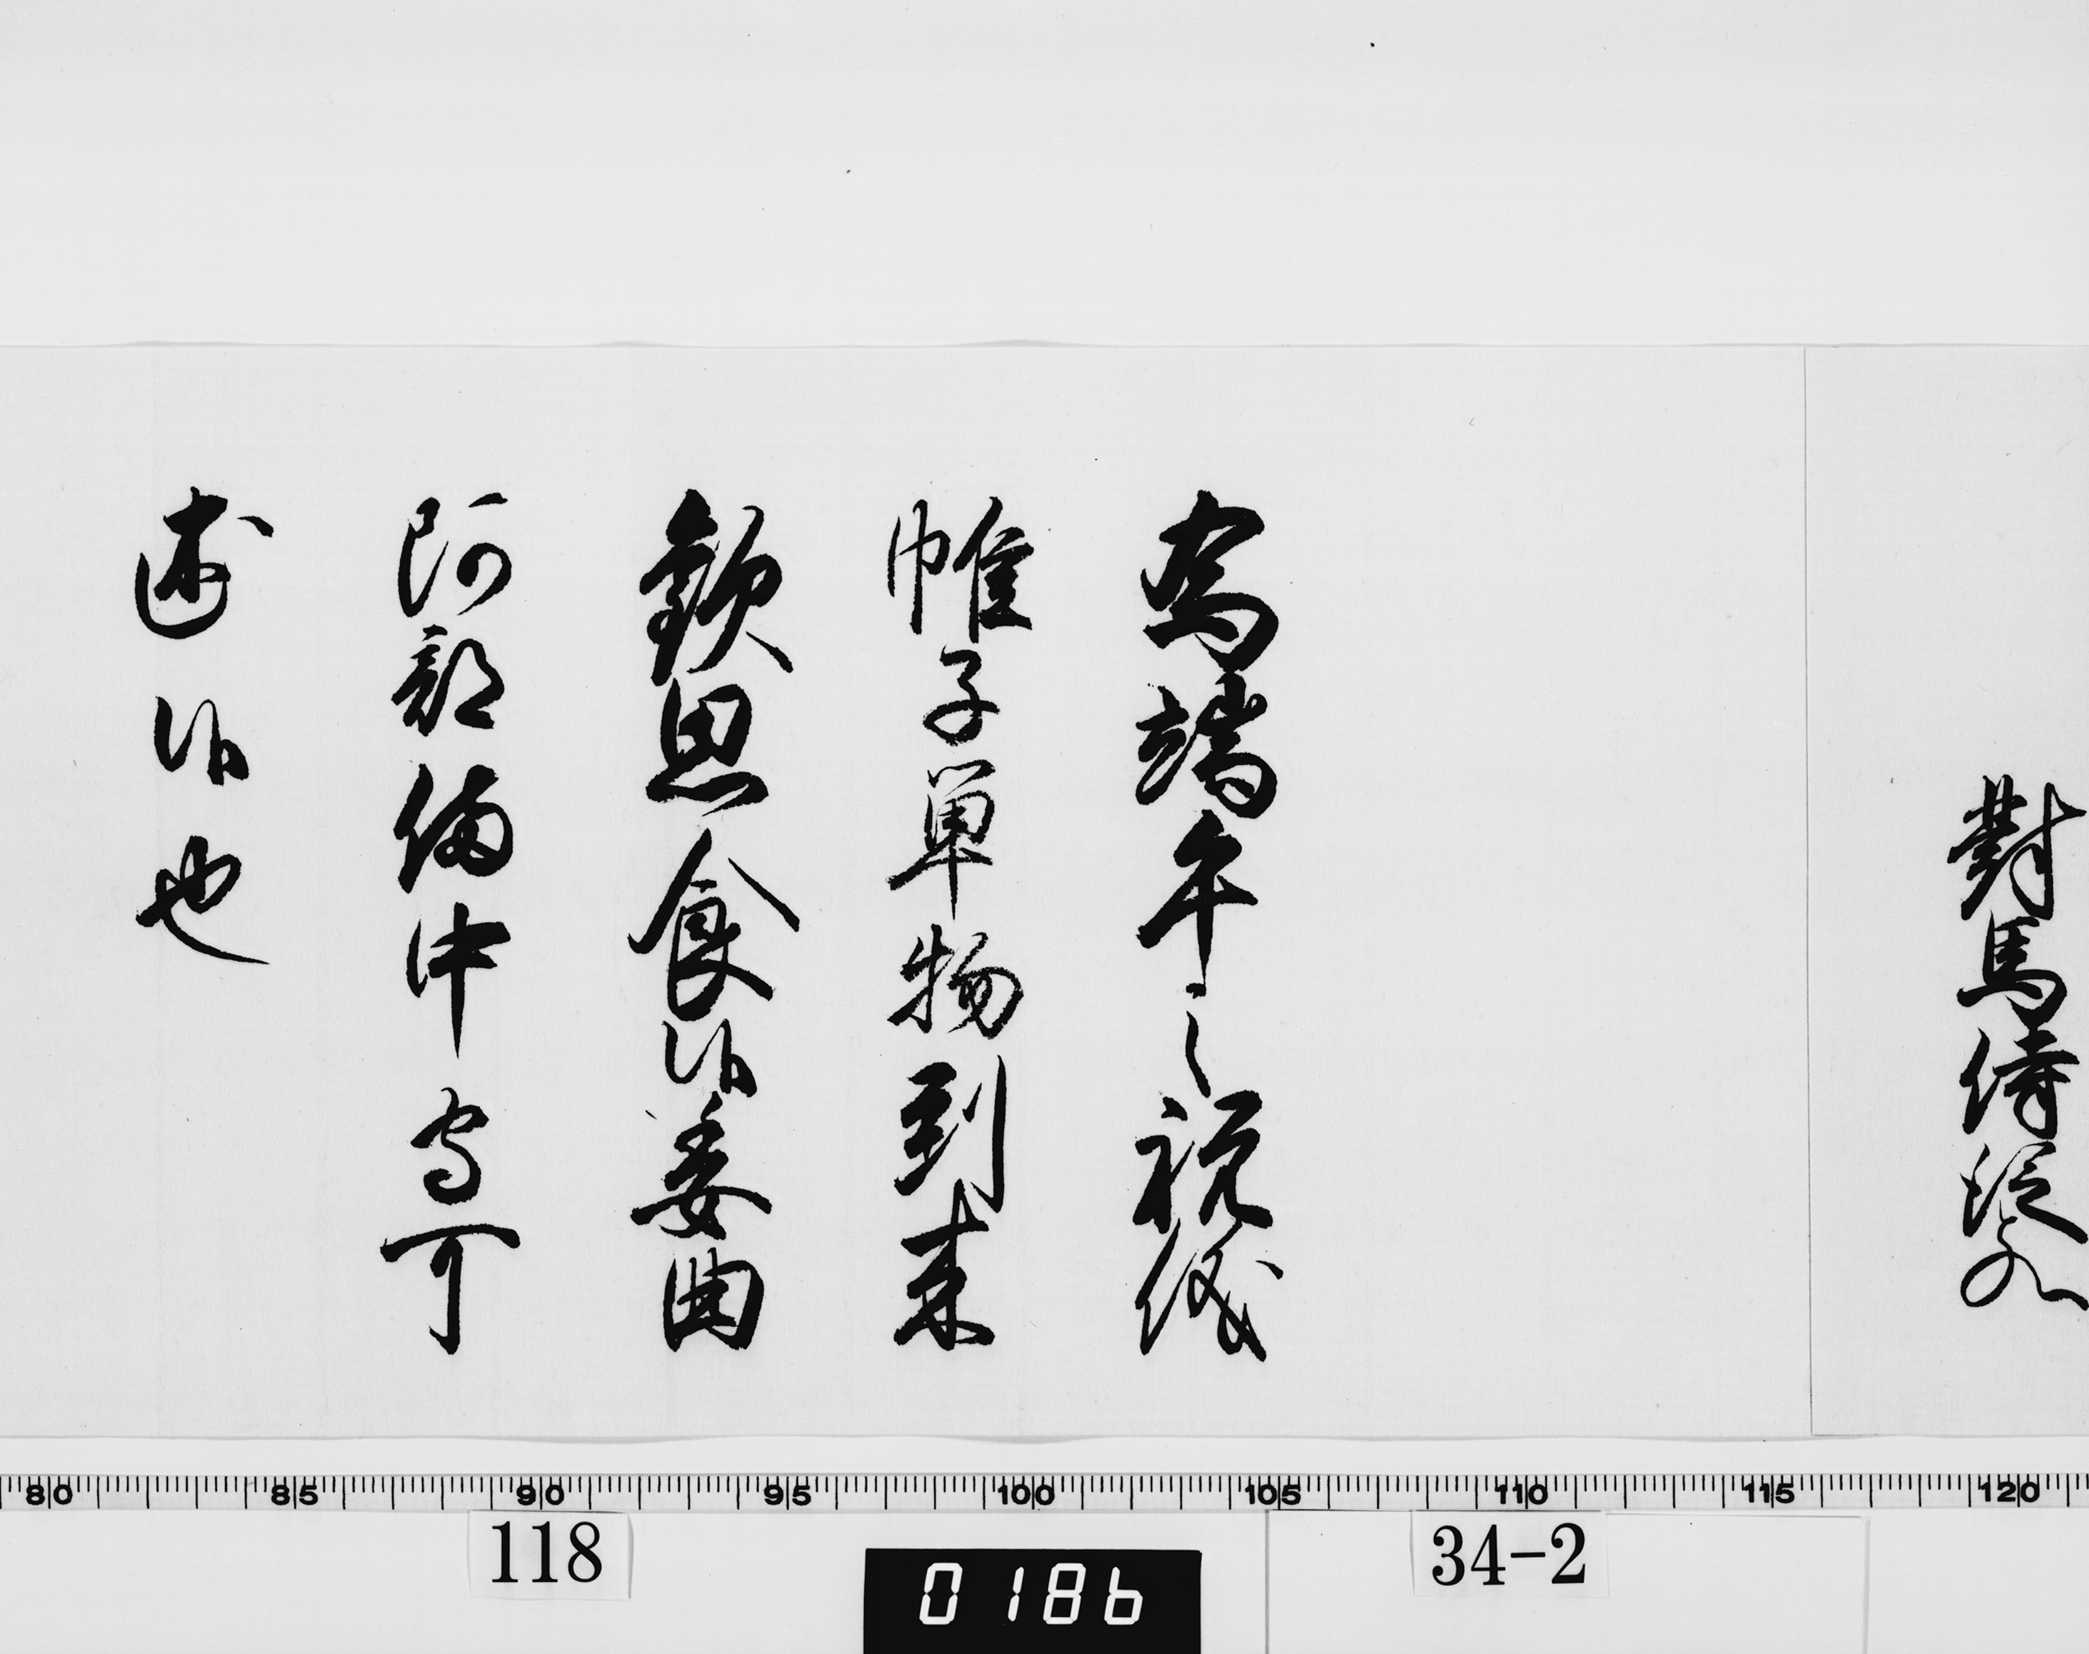 對馬侍従殿
為端午之祝儀
帷子単物到来
歓思食候委曲
阿部備中守可
述候也
80 85 90 95 100 105 110 115 120
118
0186
34-2